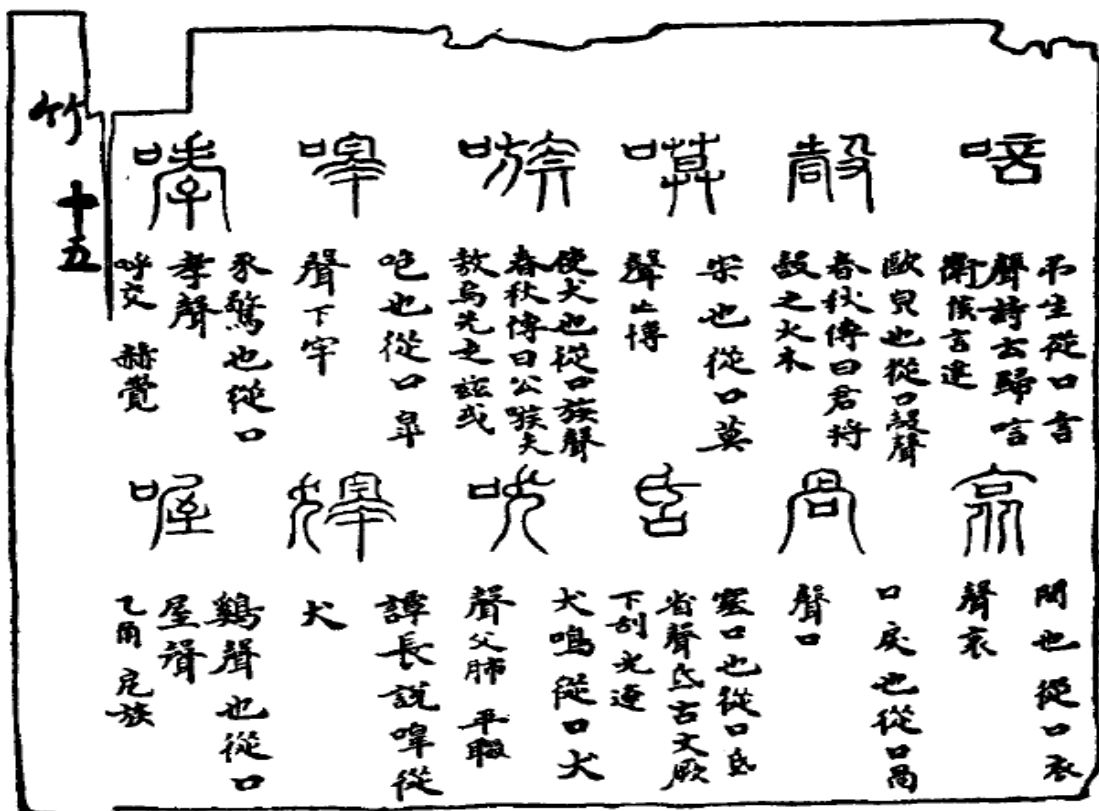 唁
弔生從口言
聲詩云歸唁
衛侯言建
嗀
歐皃也從口㱿聲
春秋傳曰君將
嗀之火木
嗼
宋也從口莫
聲亡博
嗾
使犬也從口族聲
春秋傳曰公嗾夫
敖焉先走茲戎
嘷
咆也從口皐
聲下牢
哮
豕驚也從口
孝聲
呼交 赫覺
哀
閔也從口衣
聲哀
咼
口戾也從口咼
聲口
𠯑
塞口也從口氐
省聲氐古文厥
下刮光達
吠
犬鳴從口犬
聲父肺
獋
譚長說嘷從
犬
喔
鷄聲也從口
屋聲
乙角 族
竹 十五